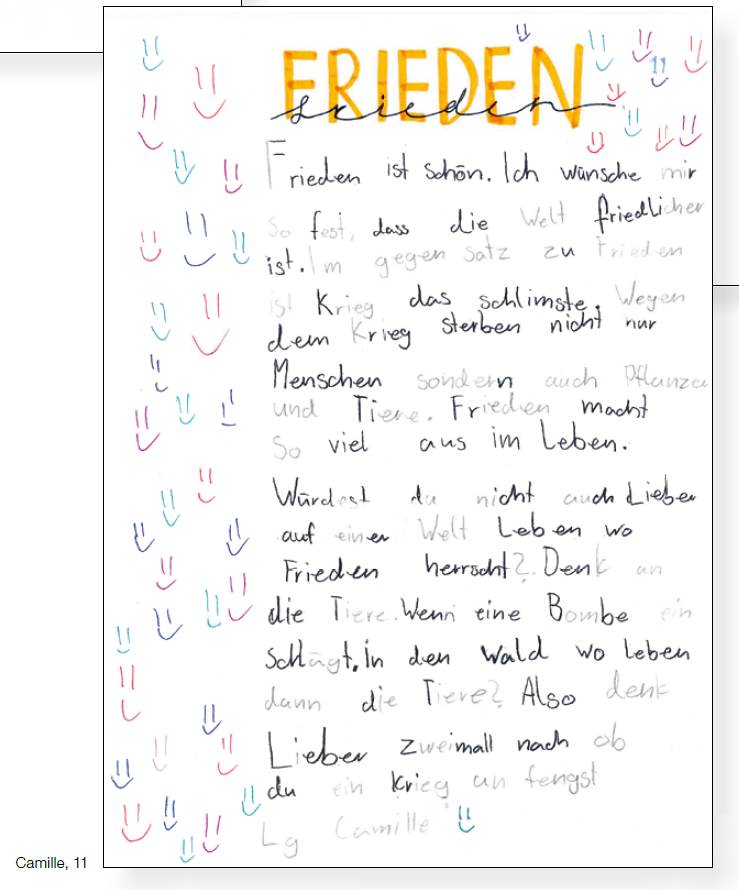 FRIEDEN
frieden
Frieden ist schön. Ich wünsche mir
So fest, dass die Welt friedlicher
ist. Im gegen satz zu Frieden
ist Krieg das schlimste. Wegen
dem Krieg sterben nicht nur
Menschen sondern auch Pflanzen
und Tiere. Frieden macht
So viel aus im Leben.
Würdest du nicht auch Lieber
auf einer Welt Leben wo
Frieden herrscht? Denk an
die Tiere. Wenn eine Bombe ein
schlägt, in den Wald wo leben
dann die Tiere? Also denk
Lieber zweimall nach ob
du ein krieg an fengst
Lg Camille
Camille, 11